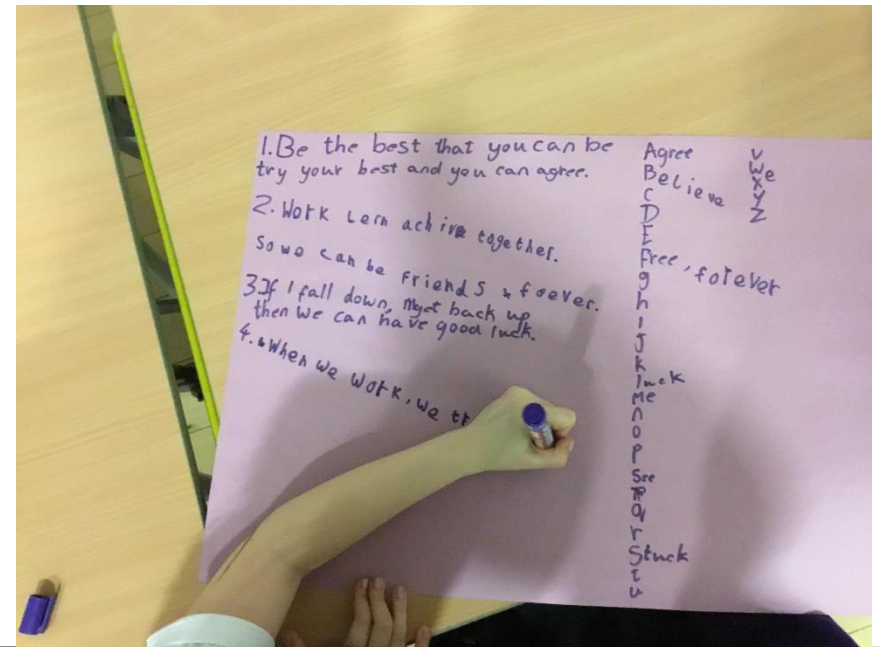 1. Be the best that you can be
try your best and you can agree.
2. Work lern achive together.
So we can be friends & foever.
3. If I fall down, get back up
then we can have good luck.
4. When we work, we
Agree
Believe
C
D
E
Free, forever
g
h
i
J
k
luck
Me
n
o
p
See
q
r
Stuck
t
u
v
We
x
y
z